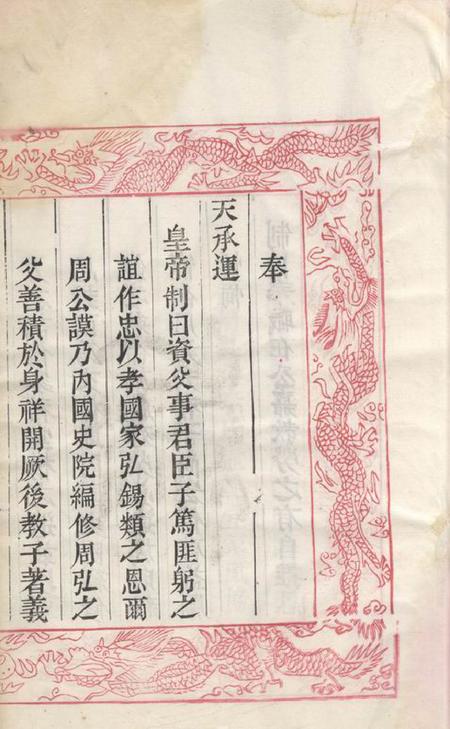 奉
天承運
皇帝制曰資父事君臣子篤匪躬之
誼作忠以孝國家弘錫類之恩爾
周公謨乃內國史院編修周弘之
父善積於身祥開厥後教子著義